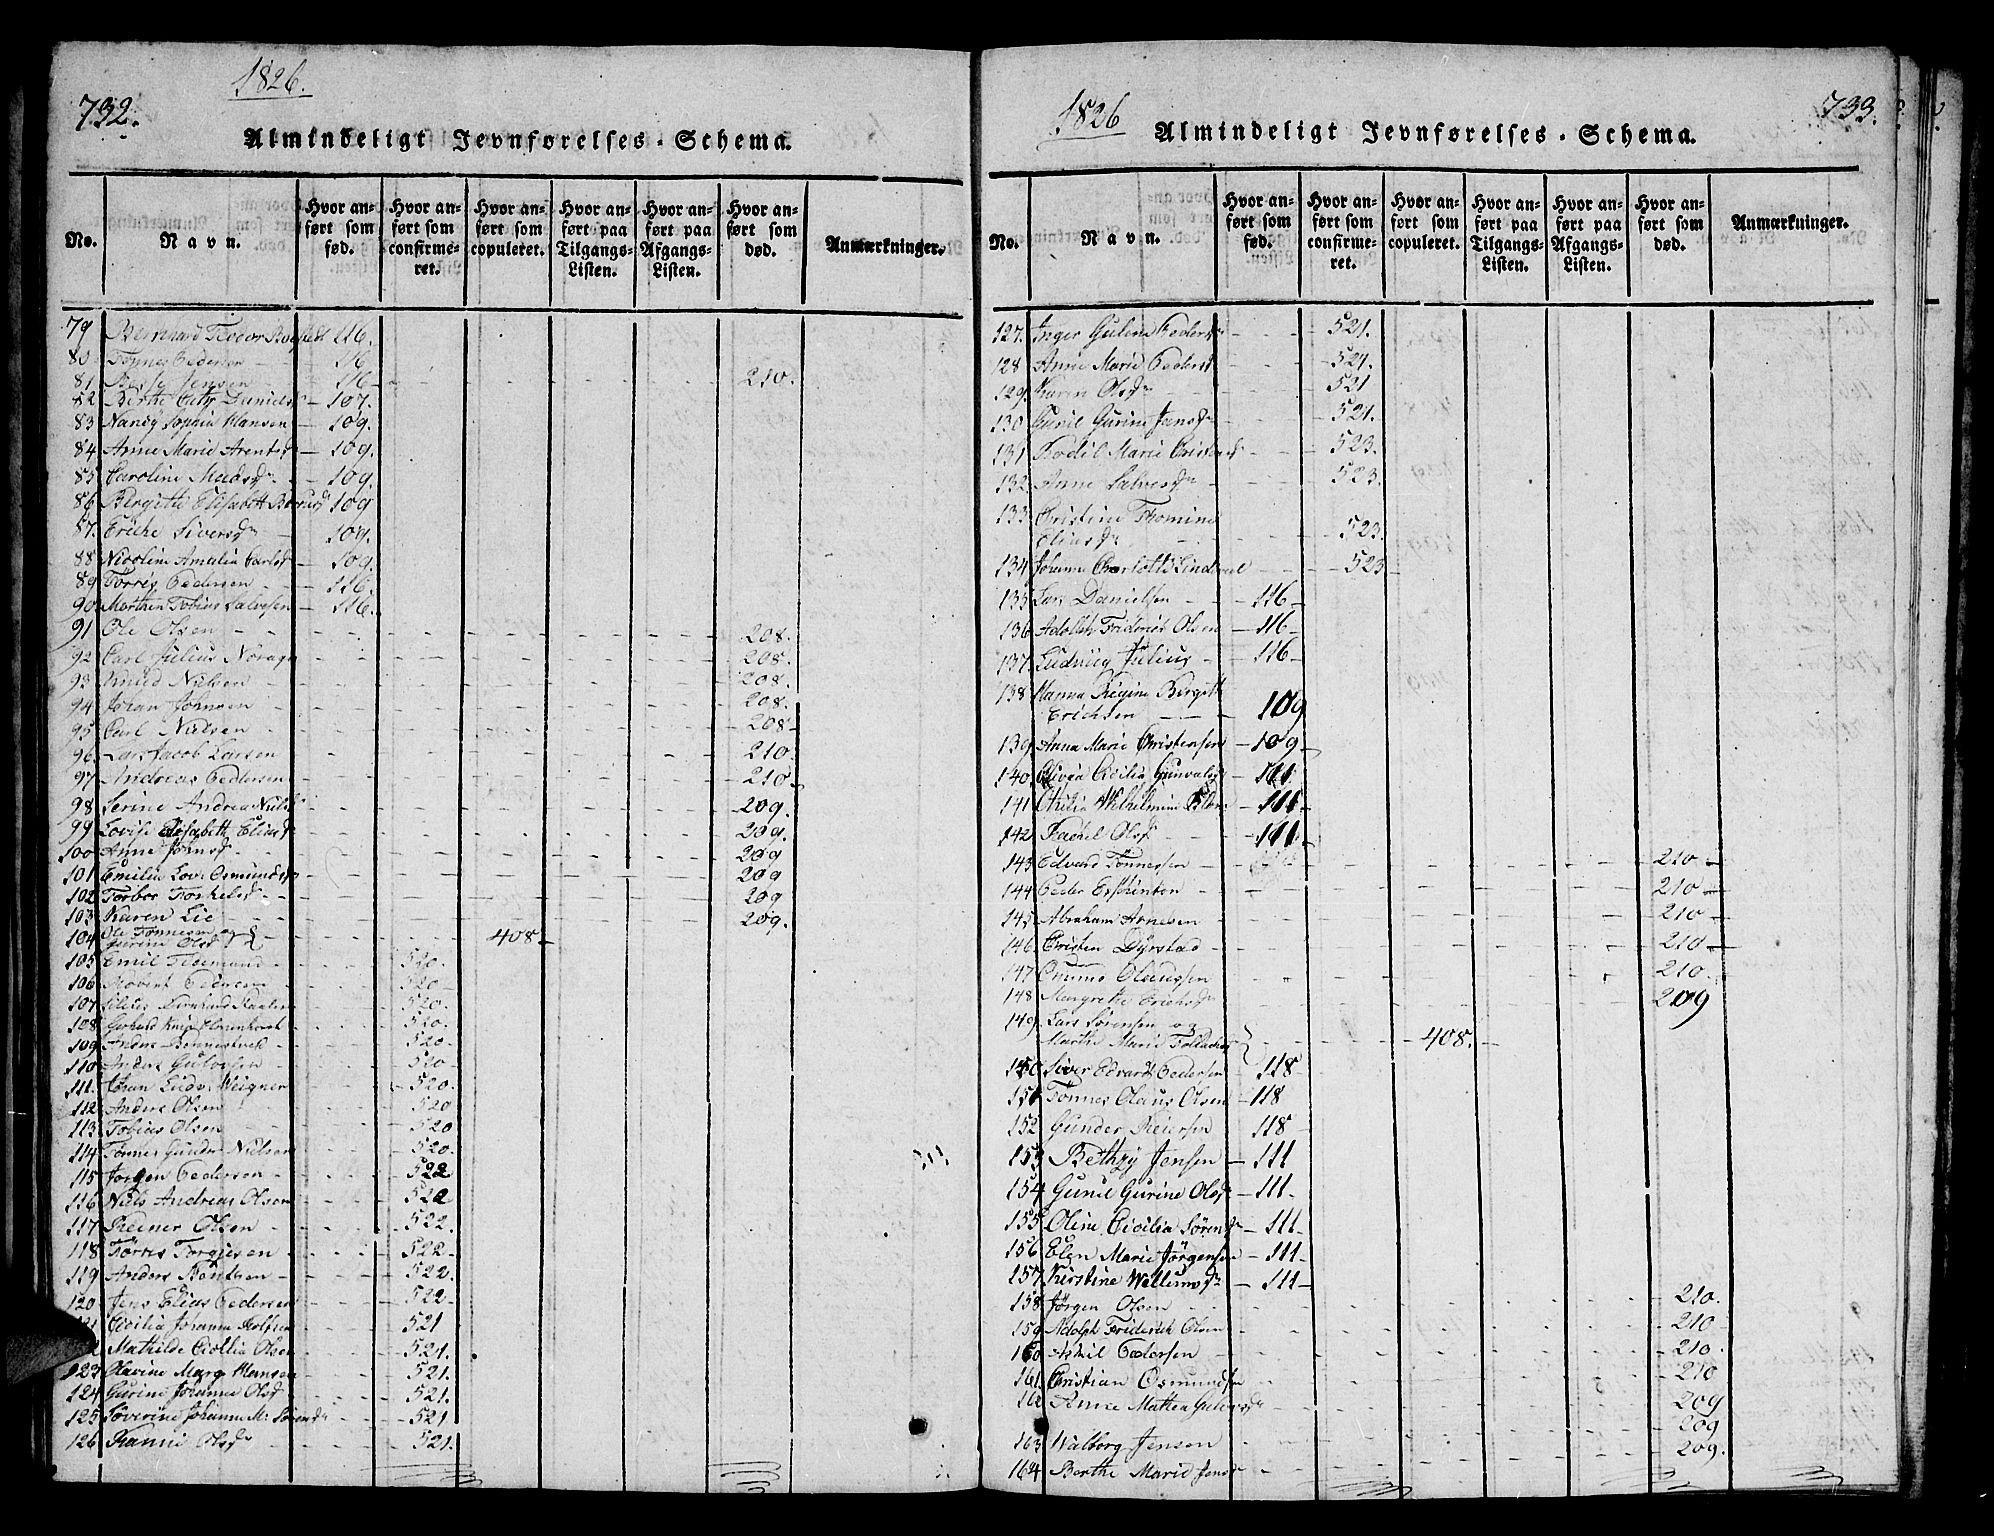 1826.
732.
Almindeligt Jevnførelses-Schema.
No.
Navn.
Hvor anført som fød.
Hvor anført som confirmeret.
Hvor anført som copuleret.
Hvor anført paa Tilgangs-Listen.
Hvor anført paa Afgangs-Listen.
Hvor anført som død.
Anmærkninger.
79 Bernhard Fedor 116.
80 Tønnes Pedersen - 116
81 Jensen - 116 - 210.
82 Berthe Cath Daniels - 107.
83 Nancy Sophia Hansen - 109.
84 Anne Marie Arents - 109.
85 Caroline Madsd. - 109.
86 Birgitte Elisabeth 109
87. Siversd. - 109.
88 Nicoline Amalia Carlsd - 109.
89 Tørris Pedersen - 116.
90 Morthen Tobias Salvesen - 116.
91 Ole Olsen - 208.
92 Carl Julius 208.
93 Knud Nielsen - 208.
94 Johan 208.
95 Carl Nielsen - 208 -
96 Lars Jacob Larsen 210
97 Andreas Pedersen 210
98 Serine Andrea Niels 209.
99 Lovise Elisabeth Eliasd 209.
100 Anne 209
101 Emilie Lov. Osmundsd 209
102 Torbor Torkelsd. - 209
103 Karen Lie 209.
104 Ole Tønnesen og Gurine Olsd } - 408 -
105 Emil 520.
106 Pedersen - 520 -
107 520.
108 Gerhard 520.
109 Andre 520 -
110 Anders 520 -
111. Johan Ludv. Weigner - 520.
112 Anders Olsen 520
113 Tobias Olsen - 520
114 Tønnes Gunder Nielsen 520.
115 Jørgen Pedersen - 522
116 Niels Andreas Olsen 522
117 Reiner Olsen - 522.
118 Tørres Torgiesen - 522 -
119 Anders Bentsen - 522.
120 Jens Elias Pedersen 522 -
Cicilia Johanne 521
Mathilde Cicilia Olsen 521.
123 Olavine Marg Hansen 521.
124 Gurine Johanne Olsd 521.
125 Severine Johanne M. Sørensd 521
126 Olsd - 521.
1826
733.
Almindeligt Jevnførelses-Schema.
No.
Navn.
Hvor anført som fød.
Hvor anført som confirmeret.
Hvor anført som copuleret.
Hvor anført paa Tilgangs-Listen.
Hvor anført paa Afgangs-Listen.
Hvor anført som død.
Anmærkninger.
127. Inger Guline Pedersd 521.
128 Anne Marie Pedersd - 521.
129. Karen Olsd - 521
130 Gunil Gurine Jensd - 521.
131 Bodil Marie - 523.
132. Anne Salvesd - 523.
133. Christine Thomine
Eliasd - 523.
134 Johanne Charlotte - 523 -
135 Lars Danielsen - 116 -
136 Adolph Friderich Olsen - 116 -
137. Ludvig Julius - 116 -
138 Hanna Regine Birgitt
Erichsen - 109
139 Anna Marie Christensen - 109 -
140 Olivia Cicilia Gunvalds - 111.
141 Othilia Wilhelmine - 111.
142 Rachel Olsd - 111.
143 Edvard Tønnessen - 210 -
144 Peder 210 -
145 Abraham Arnesen 210 -
146. Christen Dyrstad - 210 -
147 210.
148 Margrethe Erichsd 209
149. Lars Sørensen og
Marthe Marie } - 408. -
150 Siver Edvard Pedersen 118
151 Tønnes Olaus Olsen - 118
152 Gunder Reiersen 118 -
153 Bethzy Jensen - 111
154 Gunil Gurine Olsd - 111.
155 Oline Cicilia Sørensd - 111 -
156 Elen Marie Jørgensen - 111 -
157 Kirstine Wellumsd - 111 -
158 Jørgen Olsen 210.
159 Adolph Friderich Olsen 210
160 Askil Pedersen - 210.
161. Christian Osmundsen 210
162 Anne Mathea 209
209
163 Walborg Jensen 209.
164 Berthe Marie Jensd -